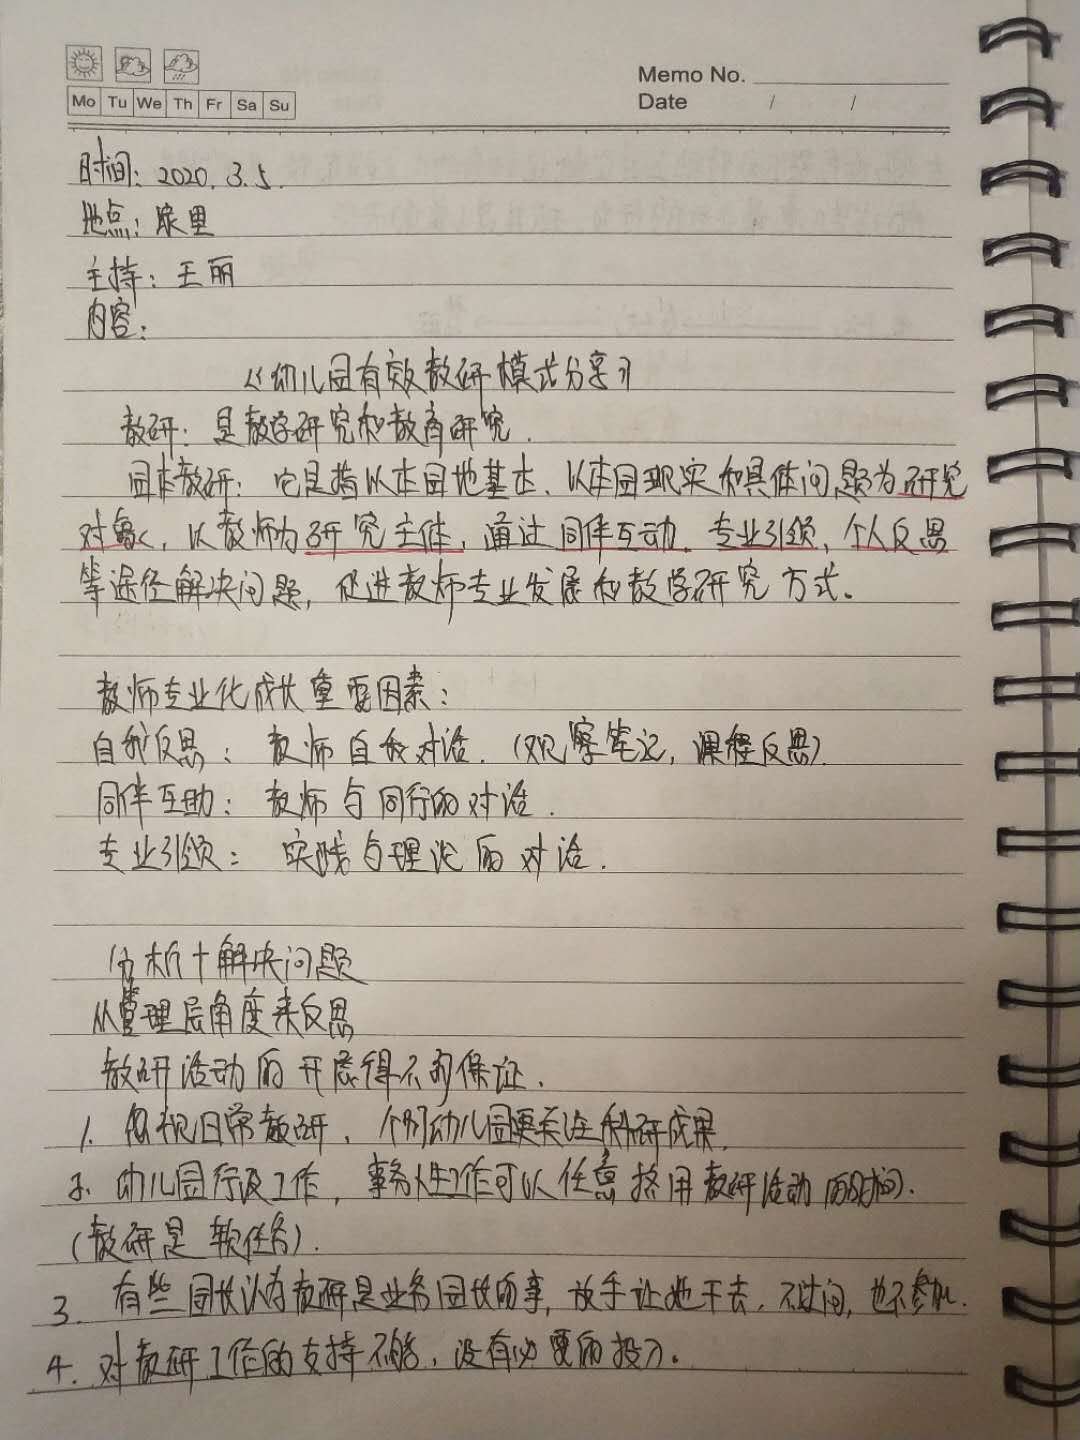 Memo No.
Mo Tu We Th Fr Sa Su
Date / /
时间：2020.3.5.
地点：家里
主持：王丽
内容：
《幼儿园有效教研模式分享》
教研：是教学研究和教育研究.
园本教研：它是指以本园地基本、以本园现实和具体问题为研究
对象，以教师为研究主体，通过同伴互动、专业引领、个人反思
等途径解决问题，促进教师专业发展和教学研究方式。
教师专业化成长重要因素：
自我反思：教师自我对话.（观察笔记，课程反思）.
同伴互助：教师与同行的对话.
专业引领：实践与理论的对话.
分析＋解决问题
从管理层角度来反思
教研活动的开展得不到保证.
1. 忽视日常教研、个别幼儿园更关注科研成果.
2. 幼儿园行政工作，事务性工作可以任意挤用教研活动的时间.
（教研是软任务）.
3. 有些园长认为教研是业务园长的事，放手让她干去，不过问，也不参加.
4. 对教研工作的支持不够，没有必要的投入。